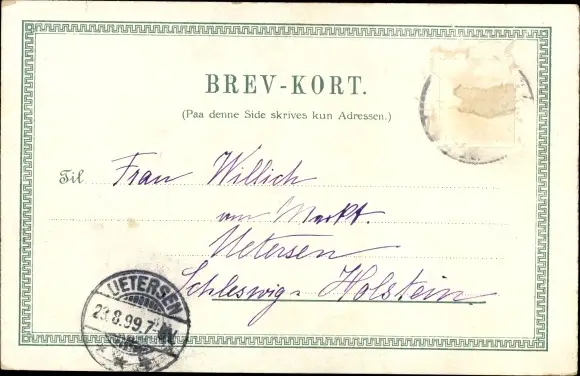 BREV-KORT.
(Paa denne Side skrives kun Adressen.)
Til Frau Willich
am Markt.
Uetersen
Schleswig-Holstein.
UETERSEN
23.8.99.7-